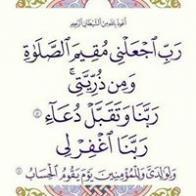 أعوذ بالله من الشيطان الرجيم
رَبِّ ٱجْعَلْنِى مُقِيمَ ٱلصَّلَوٰةِ
وَمِن ذُرِّيَّتِى ۚ
رَبَّنَا وَتَقَبَّلْ دُعَآءِ
رَبَّنَا ٱغْفِرْ لِى
وَلِوَٰلِدَىَّ وَلِلْمُؤْمِنِينَ يَوْمَ يَقُومُ ٱلْحِسَابُ